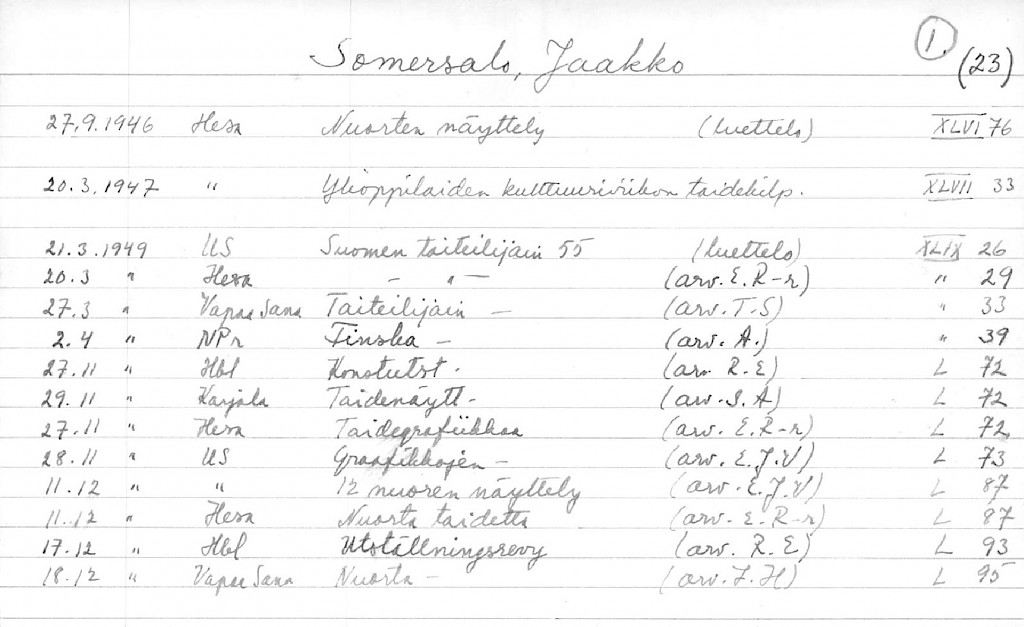 Somersalo, Jaakko 1. (23)
27.9.1946 Hesa Nuorten näyttely (luettelo) XLVI 76
20.3.1947 " Ylioppilaiden kulttuuriviikon taidekilp. XLVII 33
21.3.1949 US Suomen taiteilijain 55 (luettelo) XLIX 26
20.3 " Hesa – " – (arv. E. R-r) " 29
27.3 " Vapaa Sana Taiteilijain – (arv. T-S) " 33
2.4 " NPr Finska – (arv. A.) " 39
27.11 " Hbl Konstutst. (arv R. E) L 72
29.11 " Karjala Taidenäytt- (arv. S. A) L 72
27.11 " Hesa Taidegrafiikkaa (arv. E. R-r) L 72
28.11 " US Graafikkojen – (arv. E. J. V) L 73
11.12 " " 12 nuoren näyttely (arv. E. J. V) L 87
11.12 " Hesa Nuorta taidetta (arv. E. R-r) L 87
17.12 " Hbl Utställningsrevy (arv. R. E) L 93
18.12 " Vapaa Sana Nuorta – (arv. J. H) L 95